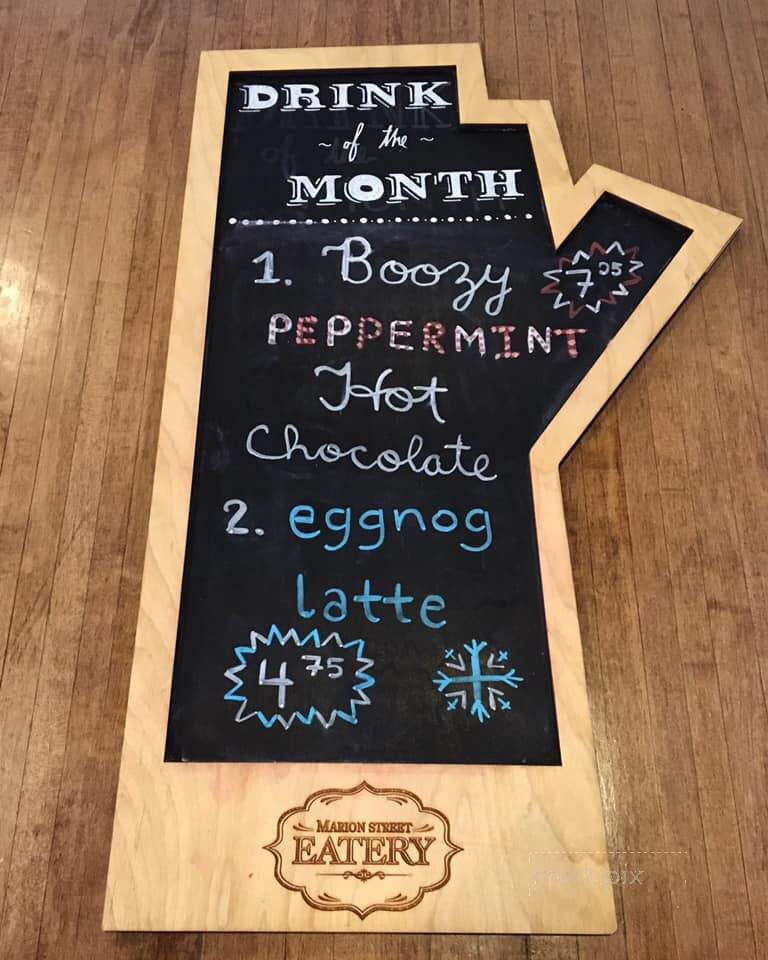 DRINK
~ of the ~
MONTH
1. Boozy
7 05
PEPPERMINT
Hot
Chocolate
2. eggnog
latte
4 75
MARION STREET
EATERY